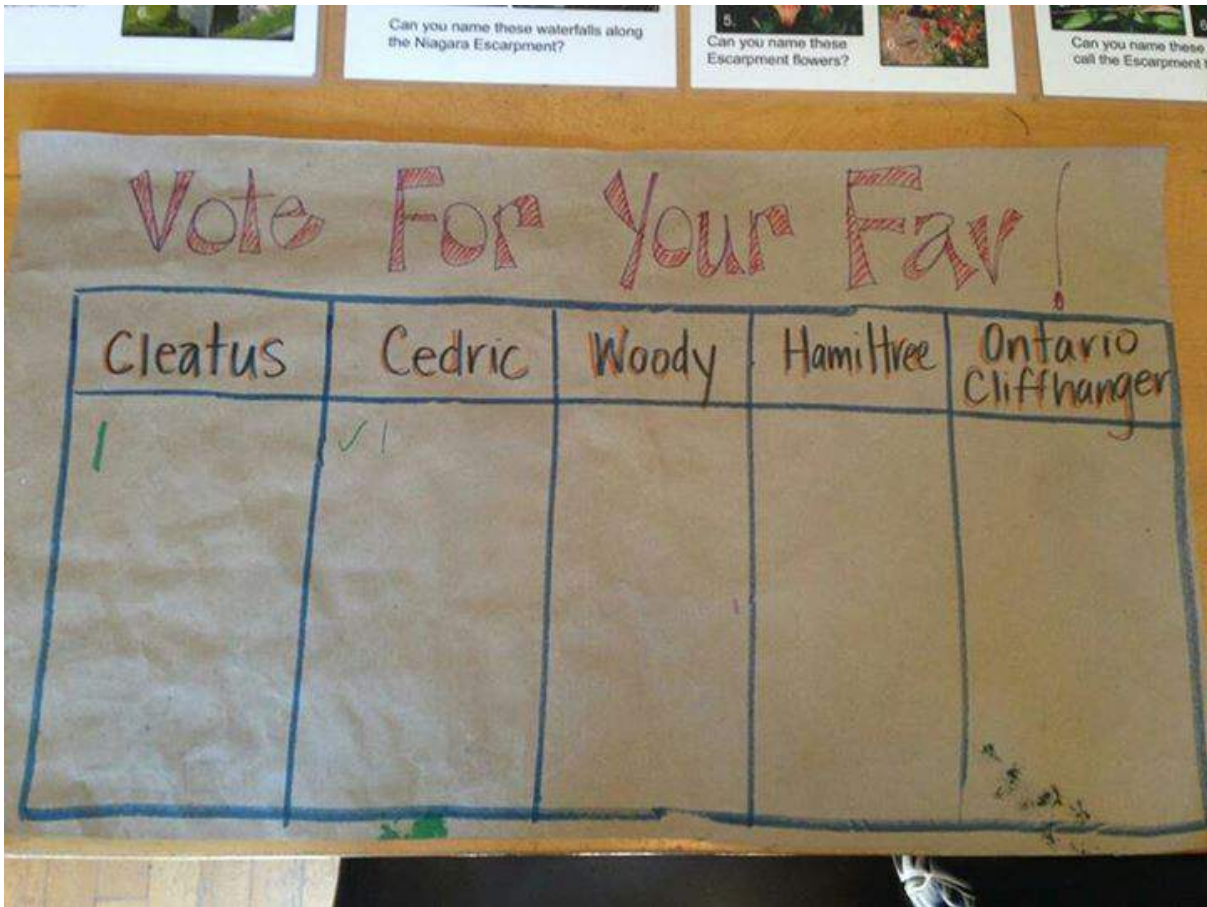 Can you name these waterfalls along
the Niagara Escarpment?
5.
Can you name these
Escarpment flowers?
6.
Can you name these
call the Escarpment
Vote For Your Fav!
Cleatus
Cedric
Woody
Hamiltree
Ontario
Cliffhanger